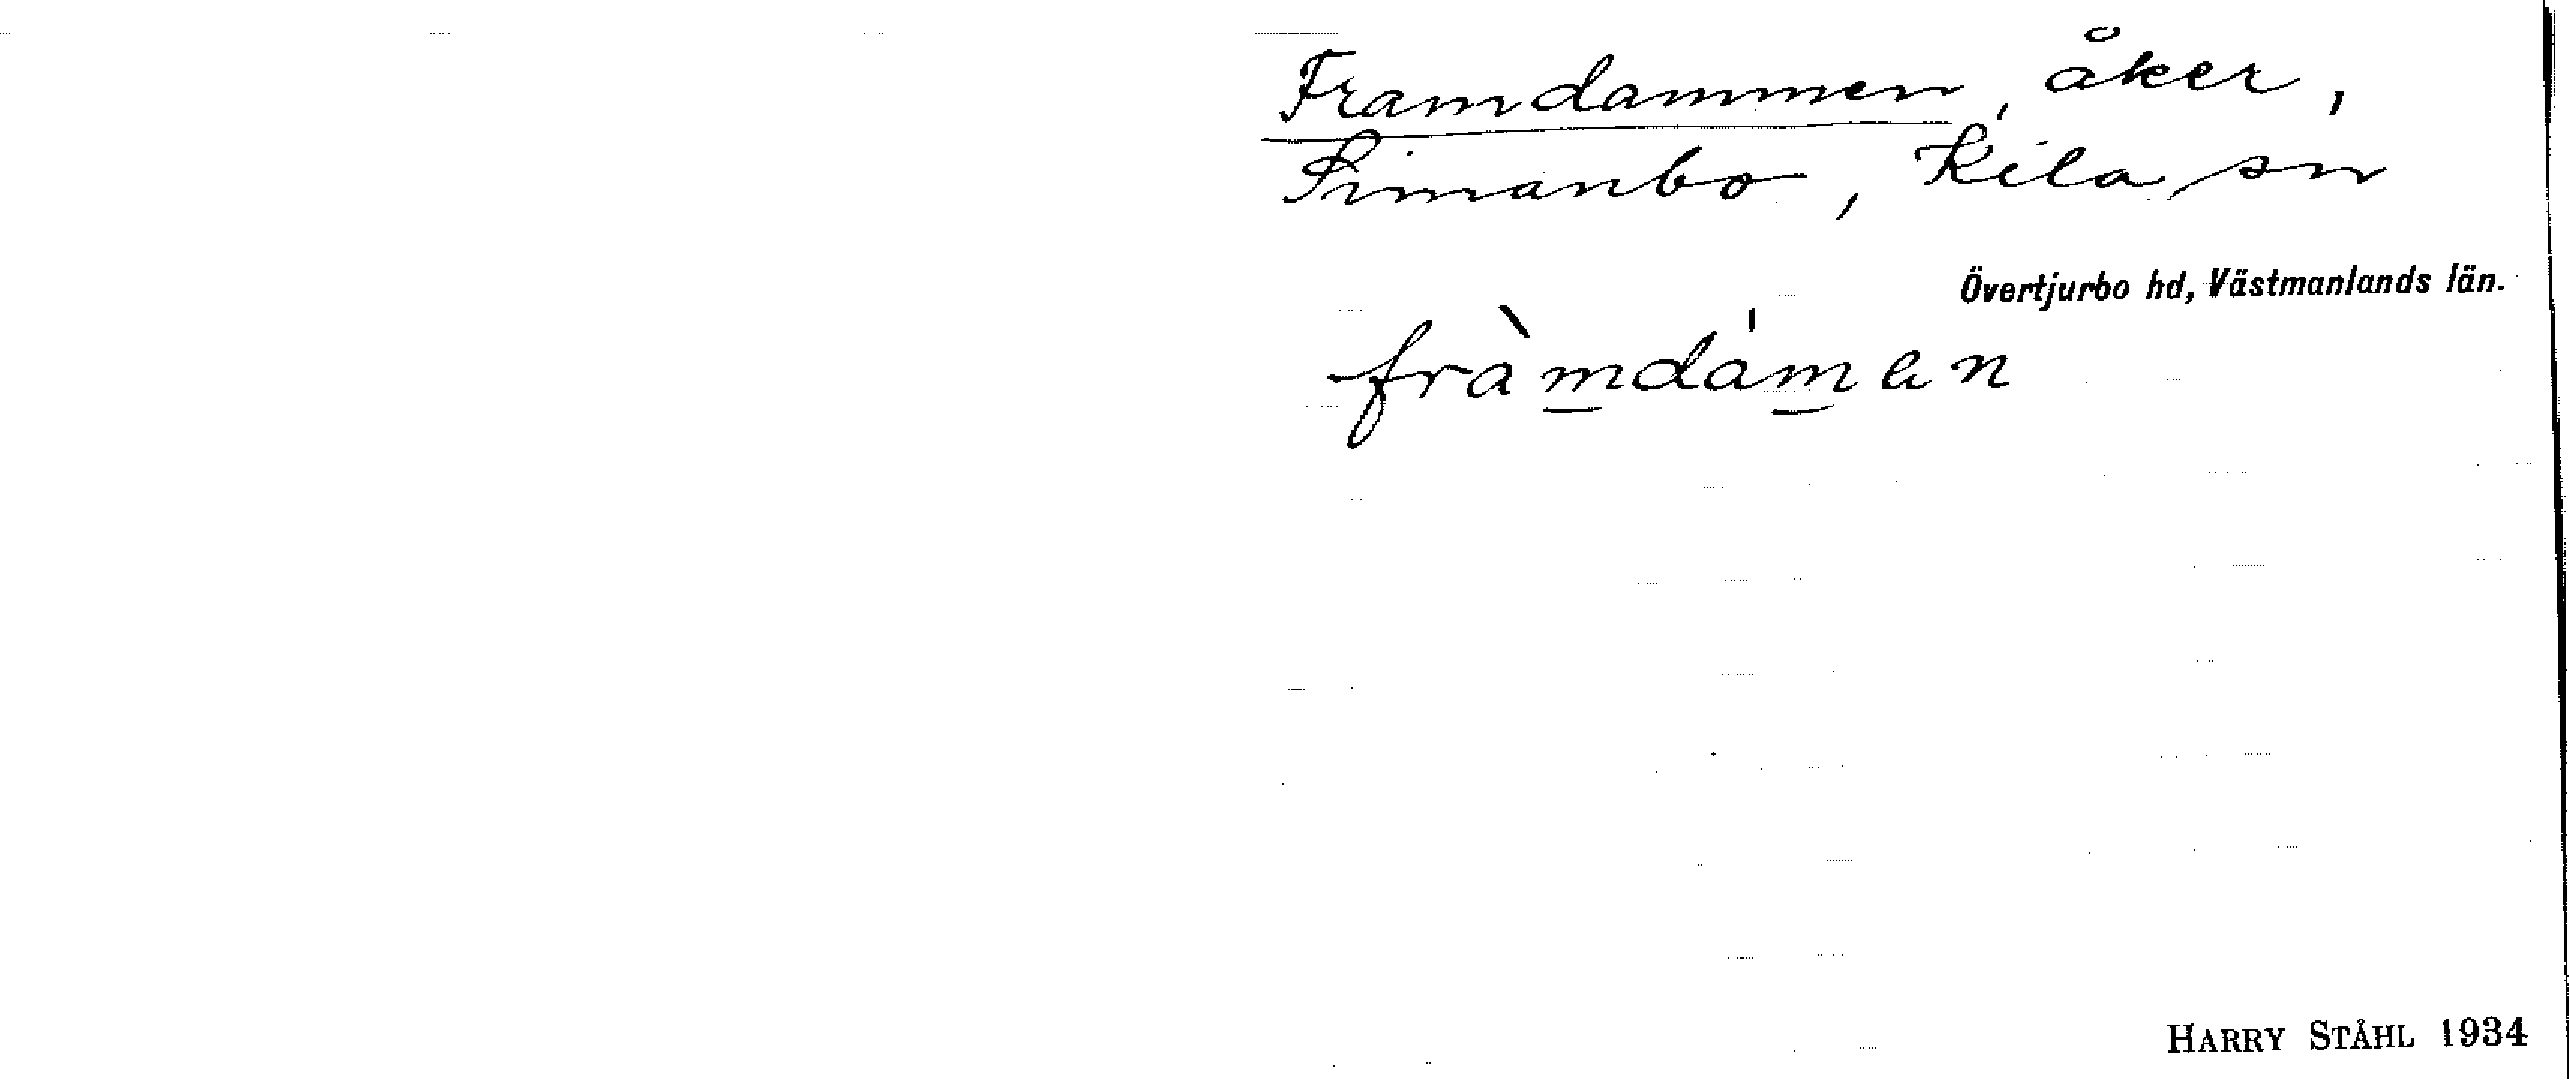 Framdammen, åker,
Simanbo, Kila sn
Övertjurbo hd, Västmanlands län.
fràm̲dám̲en
HARRY STÅHL 1934